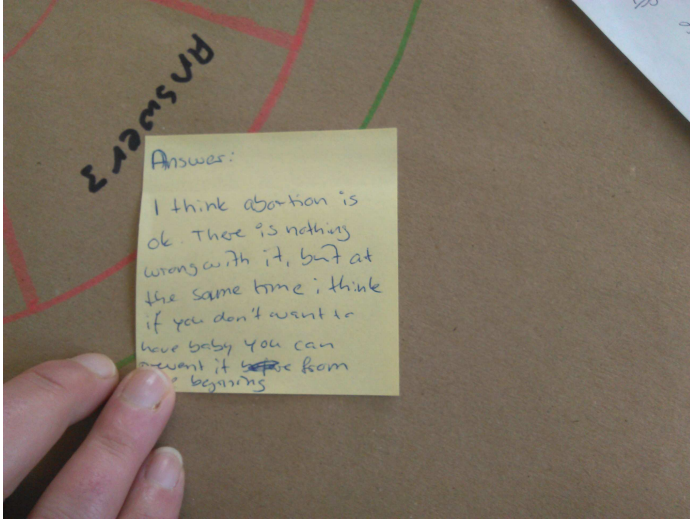 Answer 3
Answer:
I think abortion is
ok. There is nothing
wrong with it, but at
the same time i think
if you don't want to
have baby you can
prevent it from
the begining